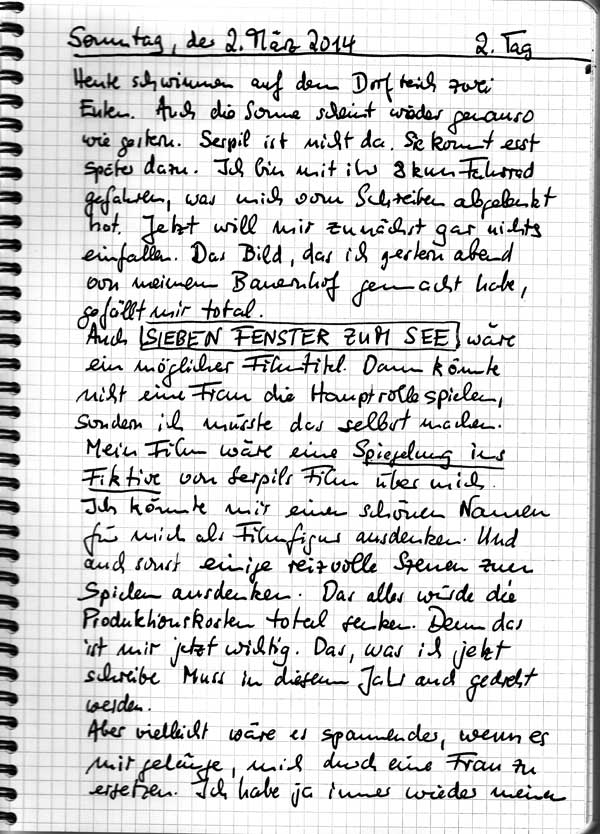 Sonntag, der 2. März 2014 2. Tag
Heute schwimmen auf dem Dorfteich zwei
Enten. Auch die Sonne scheint wieder genauso
wie gestern. Serpil ist nicht da. Sie kommt erst
später dazu. Ich bin mit ihr 8 km Fahrrad
gefahren, was mich vom Schreiben abgelenkt
hat. Jetzt will mir zunächst gar nichts
einfallen. Das Bild, das ich gestern abend
von meinem Bauernhof gemacht habe,
gefällt mir total.
Auch SIEBEN FENSTER ZUM SEE wäre
ein möglicher Filmtitel. Dann könnte
nicht eine Frau die Hauptrolle spielen,
sondern ich müsste das selbst machen.
Mein Film wäre eine Spiegelung ins
Fiktive von Serpils Film über mich.
Ich könnte mir einen schönen Namen
für mich als Filmfigur ausdenken. Und
auch sonst einige reizvolle Szenen zum
Spielen ausdenken. Das alles würde die
Produktionskosten total senken. Denn das
ist mir jetzt wichtig. Das, was ich jetzt
schreibe muss in diesem Jahr auch gedreht
werden.
Aber vielleicht wäre es spannender, wenn es
mir gelänge, mich durch eine Frau zu
ersetzen. Ich habe ja immer wieder meinen